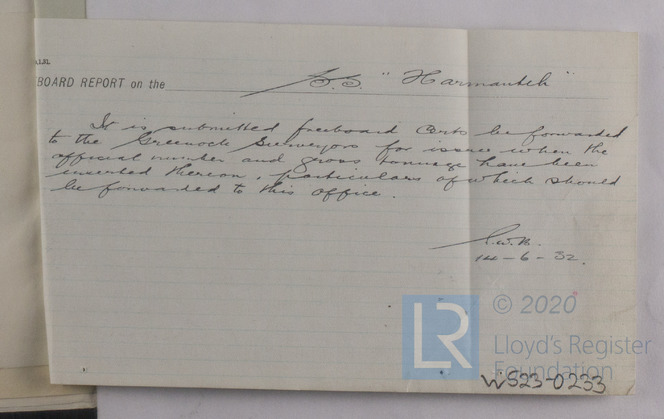 BOARD REPORT on the S.S. "Harmanteh"
It is submitted freeboard Certs be forwarded
to the Greenock Surveyors for issue when the
official number and gross tonnage have been
inserted thereon, particulars of which should
be forwarded to this office.
14-6-32.
LR
© 2020
Lloyd's Register
Foundation
WS23-0233